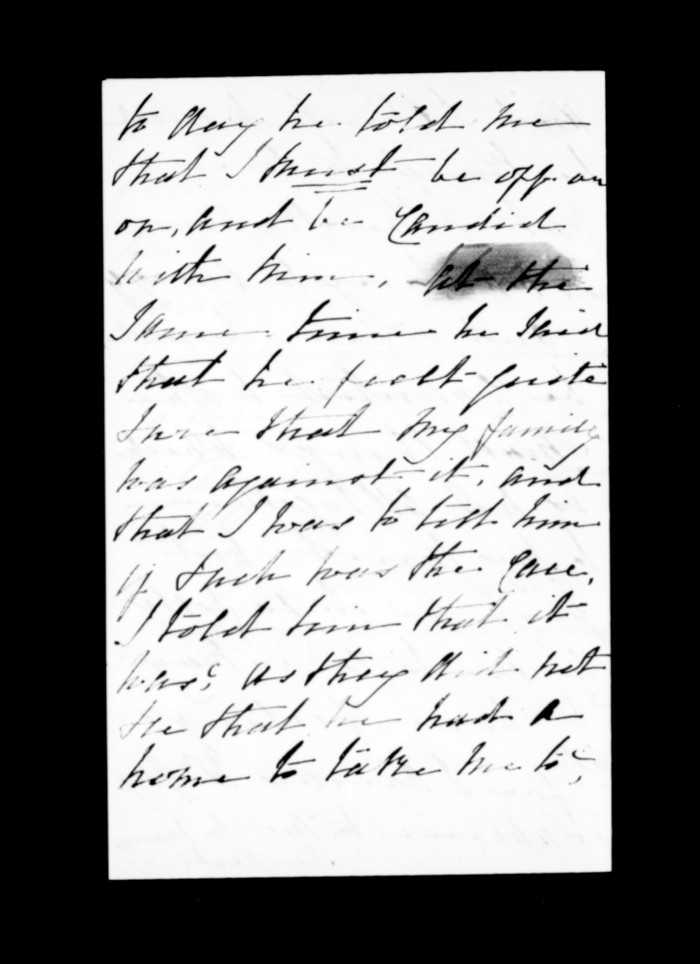 to day he told me
that I must be opp or
on, and be Candid
with him, at the
same time he said
that he feelt quite
sure that my family
was against it, and
that I was to tell him
if such was the Case,
I told him that it
was; as they did not
see that he had a
home to take me to;